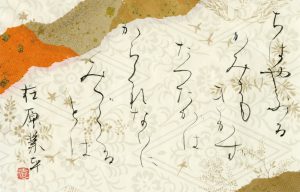 ちはやふる
かみよも
きかす
たつたかは
からくれなゐに
みつくゝる
とは
在原業平